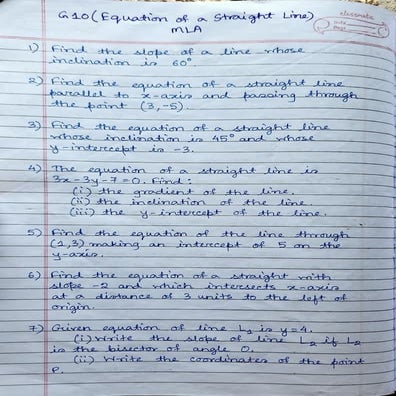 G10 (Equation of a Straight Line)
MLA
classmate
Date
Page
1) Find the slope of a line whose
inclination is 60°.
2) Find the equation of a straight line
parallel to x-axis and passing through
the point (3,-5).
3) Find the equation of a straight line
whose inclination is 45° and whose
y-intercept is -3.
4) The equation of a straight line is
3x-3y-7=0. Find:
(i) the gradient of the line.
(ii) the inclination of the line.
(iii) the y-intercept of the line.
5) Find the equation of the line through
(1,3) making an intercept of 5 on the
y-axis.
6) Find the equation of a straight with
slope -2 and which intersects x-axis
at a distance of 3 units to the left of
origin.
7) Given equation of line L2 is y=4.
(i) Write the slope of line L2 if L2
is the bisector of angle O.
(ii) Write the coordinates of the point
P.